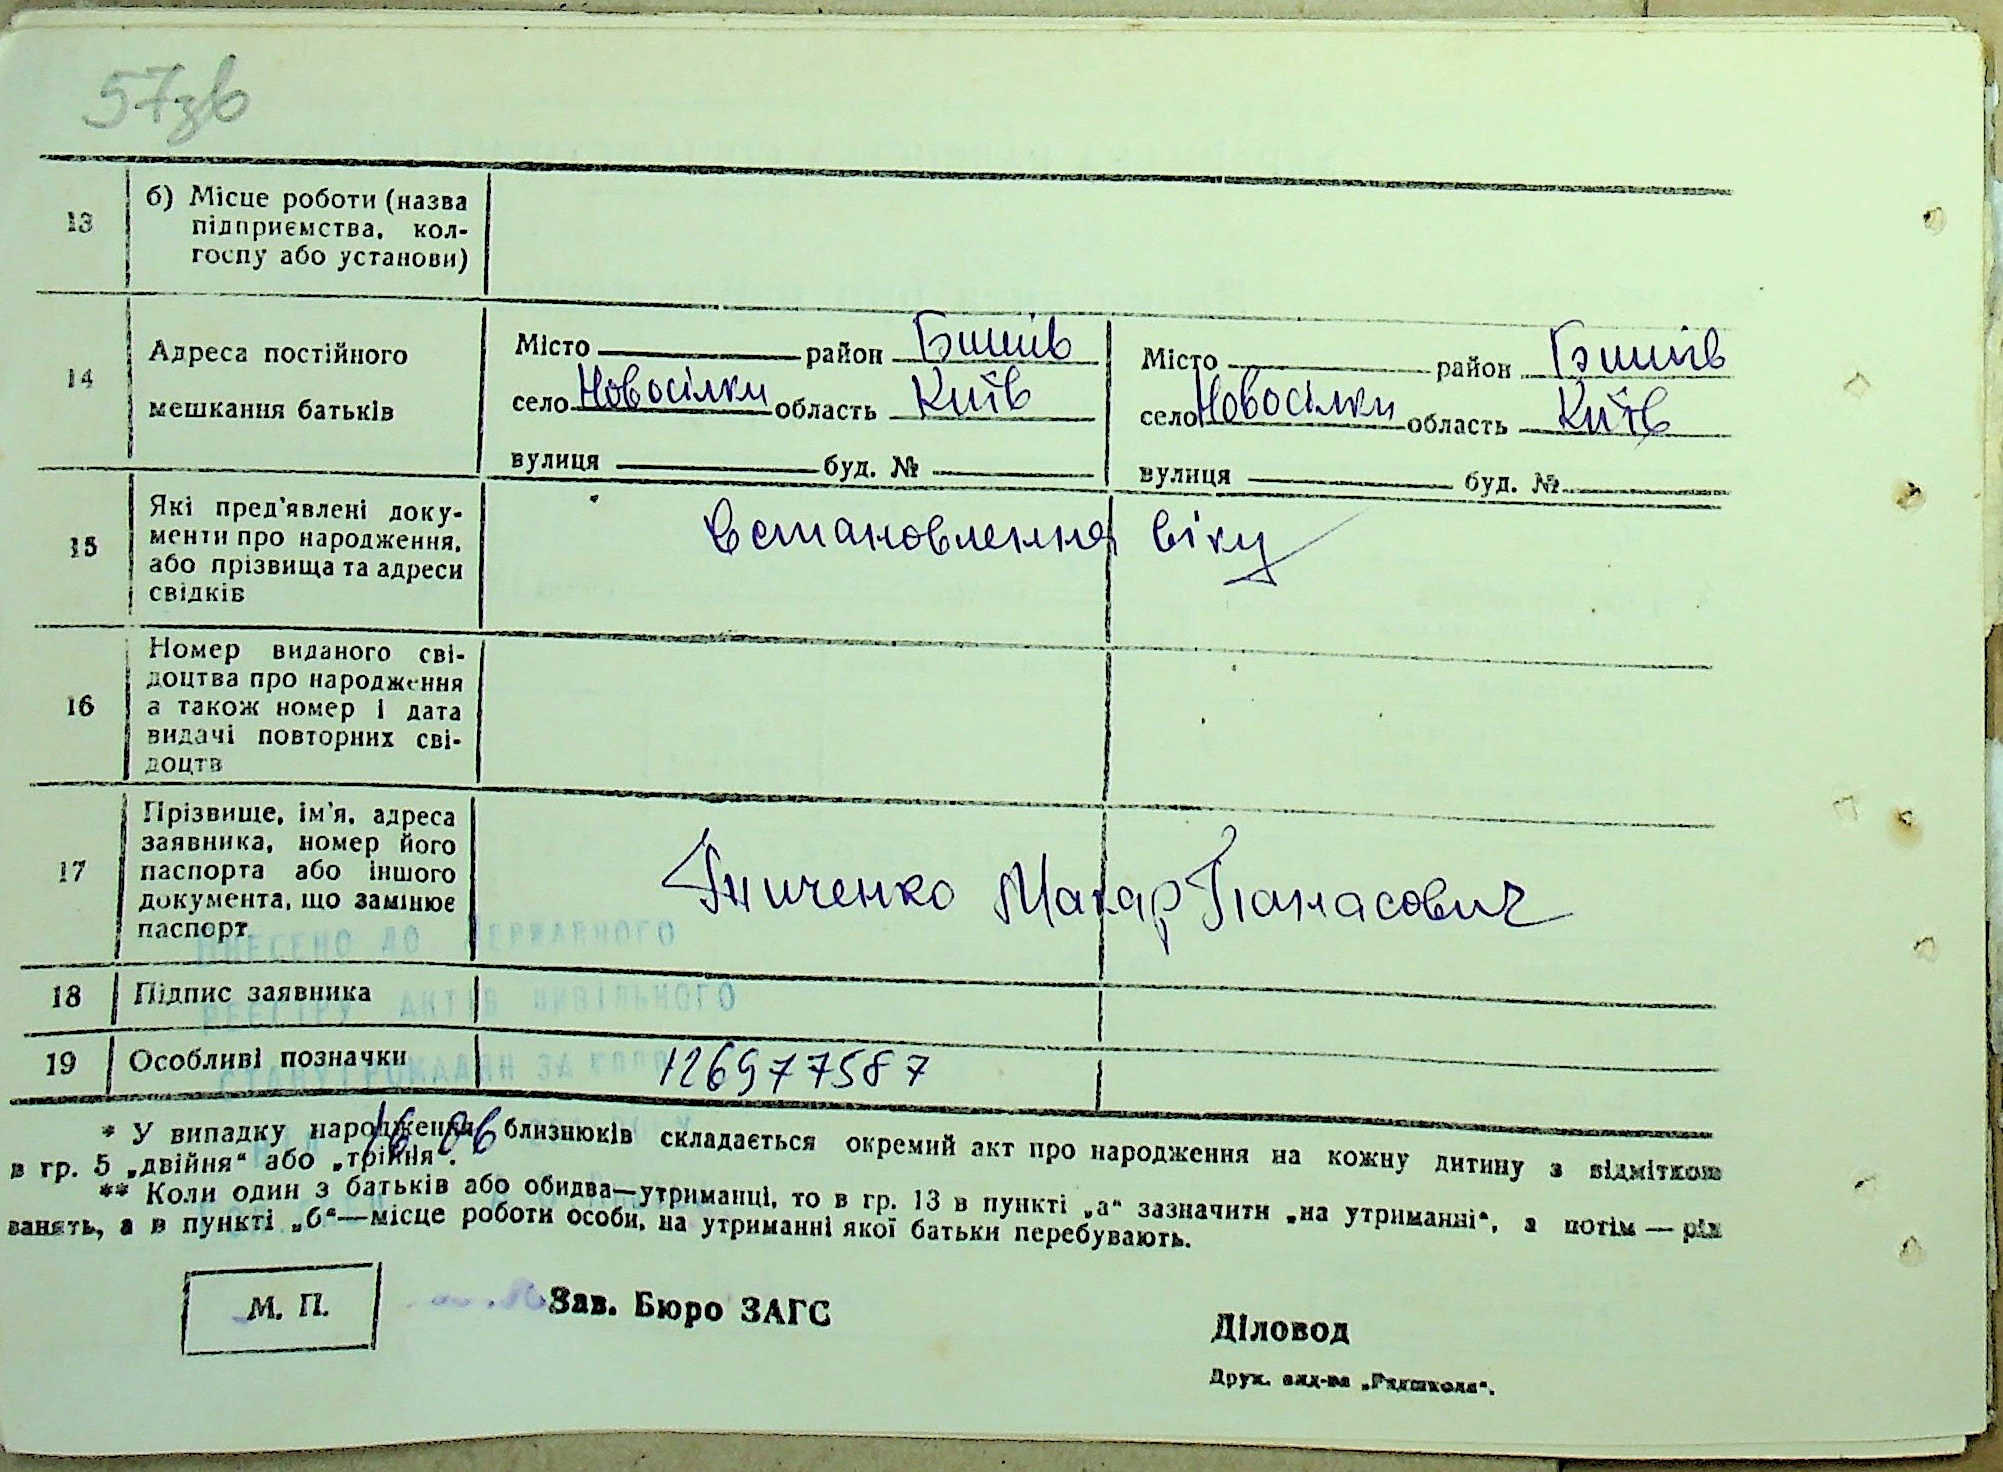 57зв
13
б) Місце роботи (назва
підприємства, кол-
госпу або установи)
14
Адреса постійного
мешкання батьків
Місто район Бишів
село Новосілки область Київ
вулиця буд. №
Місто район Бишів
село Новосілки область Київ
вулиця буд. №
15
Які пред'явлені доку-
менти про народження,
або прізвища та адреси
свідків
Встановлення віку
16
Номер виданого сві-
доцтва про народження
а також номер і дата
видачі повторних сві-
доцтв
17
Прізвище, ім'я, адреса
заявника, номер його
паспорта або іншого
документа, що замінює
паспорт
Макар Панасович
ВНЕСЕНО ДО ДЕРЖАВНОГО
РЕЄСТРУ АКТІВ ЦИВІЛЬНОГО
СТАНУ ГРОМАДЯН ЗА
18
Підпис заявника
19
Особливі позначки
126977587
16 06
* У випадку народження близнюків складається окремий акт про народження на кожну дитину з відміткою
в гр. 5 „двійня“ або „трійня“.
** Коли один з батьків або обидва—утриманці, то в гр. 13 в пункті „а“ зазначити „на утриманні“, а потім — рід
занять, а в пункті „б“—місце роботи особи, на утриманні якої батьки перебувають.
М. П.
Зав. Бюро ЗАГС
Діловод
Друк. вид-ва „Радшкола“.